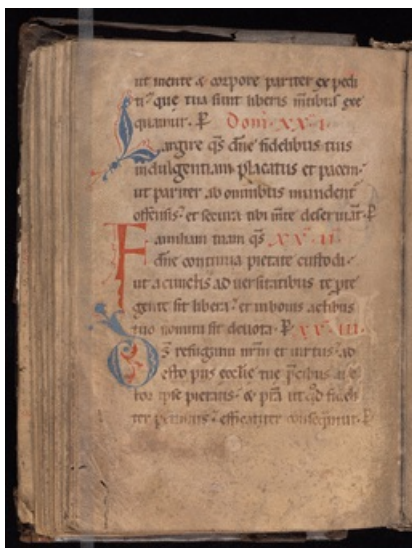 ut mente & corpore pariter expedi
ti ̛ que tua sunt liberis m̅tibus exe
quamur. P̷ Dom̅. XX.I.
Largire qs̅ dn̅e fidelibus tuis
indulgentiam placatus et pacem.
ut pariter ab omnibus mundent᷑
offensis. et secura tibi m̅te deseruiant. P̷
Familiam tuam qs̅ XX.II.
dn̅e continua pietate custodi.
ut a cunctis aduersitatibus te pro
gente sit libera. et in bonis actibus
tuo nomini sit deuota. P̷ XX.III.
Ds̅ refugium nr̅m et uirtus. ad
esto piis eccl̅ie tue p̅cibus auc
tor ipse pietatis. & pr̅a ut qd̅ fideli
ter petimus. efficaciter consequamur. P̷